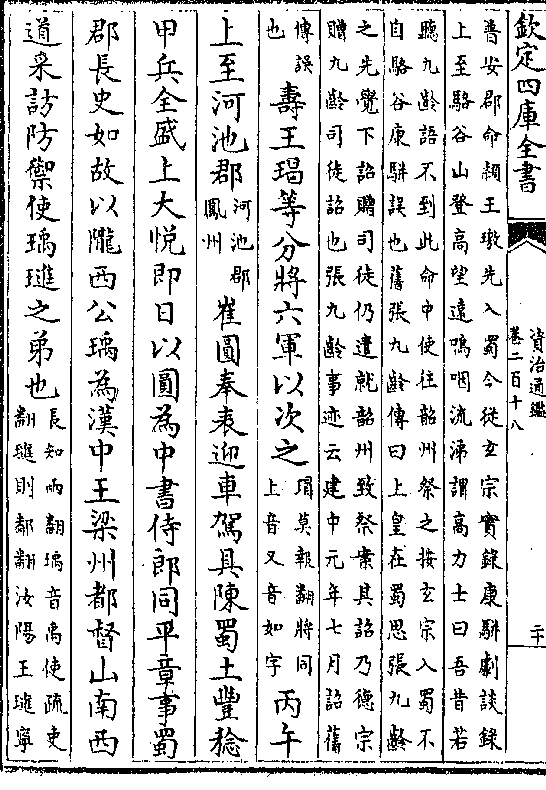 欽定四庫全書
資治通鑑
卷二百十八
二十
普安郡命潁王璬先入蜀今從玄宗實錄康駢劇談錄
上至駱谷山登高望遠嗚咽流涕謂高力士曰吾昔若
聽九齡語不到此命中使往韶州祭之按玄宗入蜀不
自駱谷康駢誤也舊張九齡傳曰上皇在蜀思張九齡
之先覺下詔贈司徒仍遣就韶州致祭案其詔乃德宗
贈九齡司徒詔也張九齡事迹云建中元年七月詔舊
傳誤
也
壽王瑁等分將六軍以次之
瑁莫報翻將同
上音又音如字
丙午
上至河池郡
河池郡
鳳州
崔圓奉表迎車駕具陳蜀土豐稔
甲兵全盛上大悅即日以圓為中書侍郎同平章事蜀
郡長史如故以隴西公瑀為漢中王梁州都督山南西
道采訪防禦使瑀璡之弟也
長知兩翻瑀音禹使疏吏
翻璡則鄰翻汝陽王璡寧